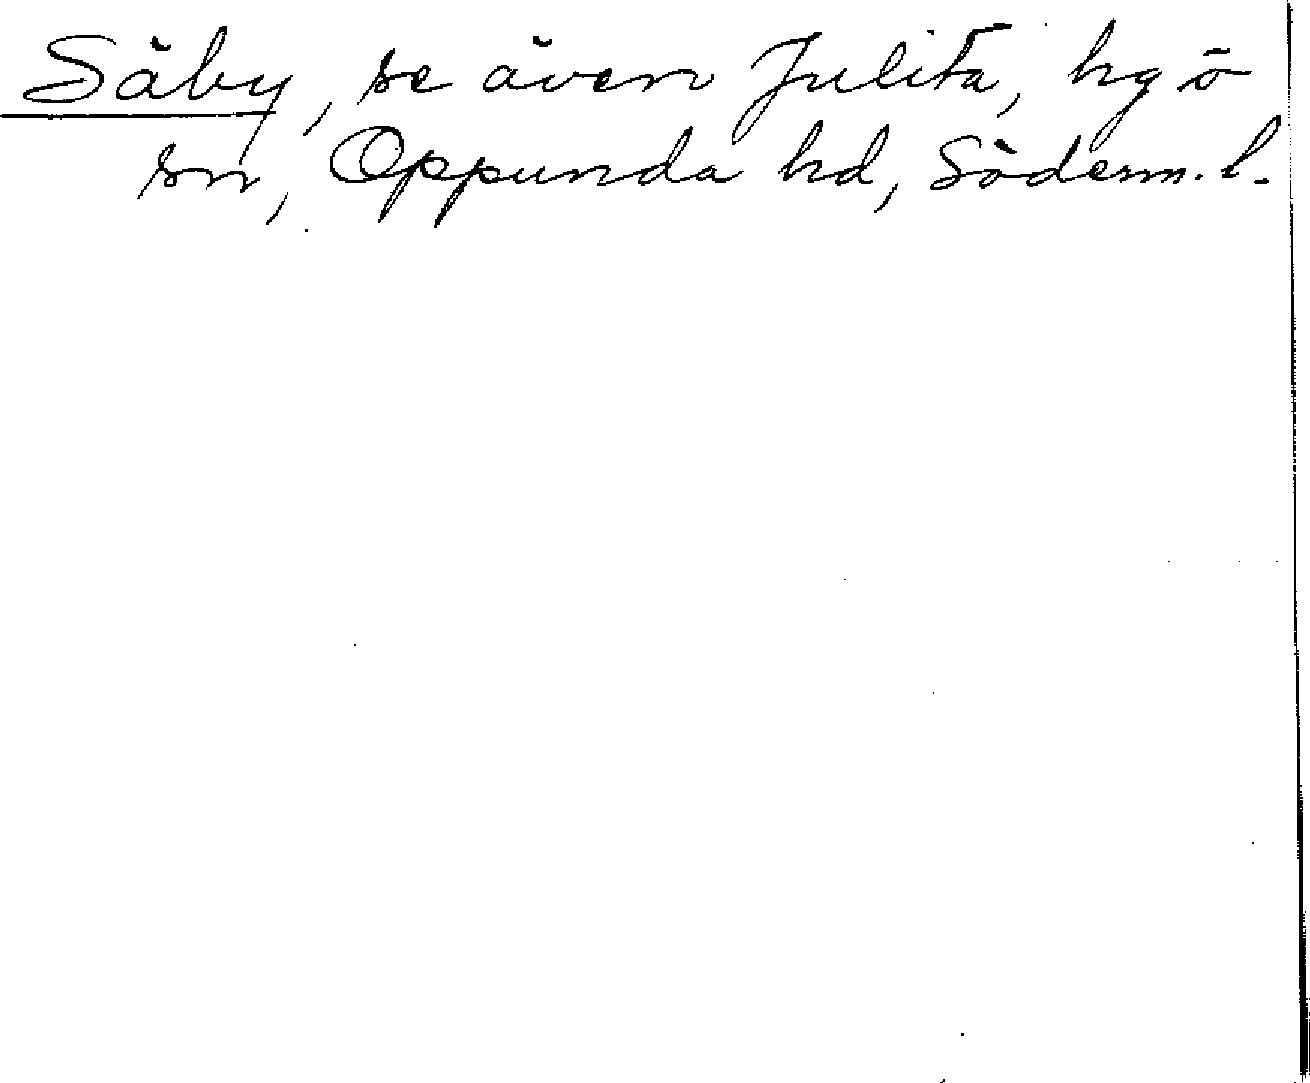 Säby, se även Julita, hg o
sn, Oppunda hd, Söderm. l.